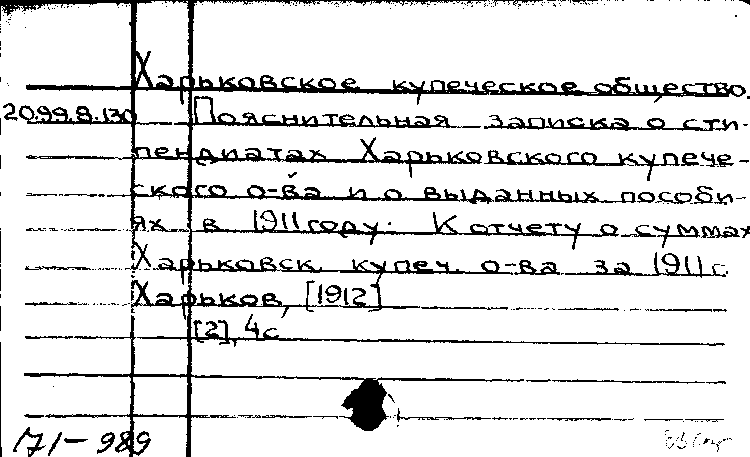 Харьковское купеческое общество.
20.99.8.130 Пояснительная записка о сти-
пендиатах Харьковского купече-
ского о-ва и о выданных пособи-
ях в 1911 году: К отчету о суммах
Харьковск. купеч. о-ва за 1911 г.
Харьков, [1912]
[2], 4 с
171-989